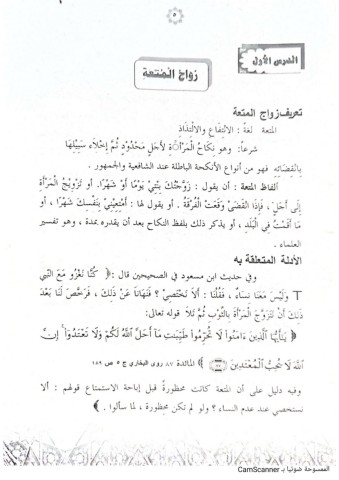 ٥
الدرس الأول
زواج المتعة
تعريف زواج المتعة
المتعة لغة : الانتفاع والالتذاذ
شرعاً: وهو نِكَاحُ المرأة لِأَجَلٍ مَحْدُودٍ ثُمَّ إِخْلَاء سَبِيلِهَا
بِانْقِضَائِهِ فهو من أنواع الأنكحة الباطلة عند الشافعية والجمهور .
ألفاظ المتعة : أن يقول : زَوَّجْتُكَ بِنْتِي يَوْمًا أَوْ شَهْرًا. أو تَزْوِيجُ الْمَرْأَةِ
إلَى أَجَلٍ ، فَإِذَا انْقَضَى وَقَعَتْ الْفُرْقَةُ . أو يقول لها : أَمْتِعِينِي بِنَفْسِكِ شَهْرًا ، أو
مَا أَقَمْتُ فِي الْبَلَدِ ، أو يذكر ذلك بلفظ النكاح بعد أن يقدره بمدة ، وهو تفسير
العلماء .
الأدلة المتعلقة به
وفي حديث ابن مسعود في الصحيحين قال :( كُنَّا نَغْزُو مَعَ النَّبِي
وَلَيْسَ مَعَنَا نِسَاء ، فَقُلْنَا : أَلَا نَخْتَصِي ؟ فَنَهَانَا عَنْ ذَلِكَ ، فَرَخَّصَ لَنَا بَعْدَ
ذَلِكَ أَنْ نَتَزَوَّجَ الْمَرْأَةَ بِالثَّوْبِ ثُمَّ تَلَا قوله تعالى:
﴿ يَٰٓأَيُّهَا ٱلَّذِينَ ءَامَنُوا۟ لَا تُحَرِّمُوا۟ طَيِّبَٰتِ مَآ أَحَلَّ ٱللَّهُ لَكُمْ وَلَا تَعْتَدُوٓا۟ إِنَّ
ٱللَّهَ لَا يُحِبُّ ٱلْمُعْتَدِينَ ﴾ المائدة ٨٧ روى البخاري ج ٥ ص ١٨٩
وفيه دليل على أن المتعة كانت محظورة قبل إباحة الاستمتاع قولهم : ألا
نستخصي عند عدم النساء ؟ ولو لم تكن محظورة ، لما سألوا .
الممسوحة ضوئيا بـ CamScanner